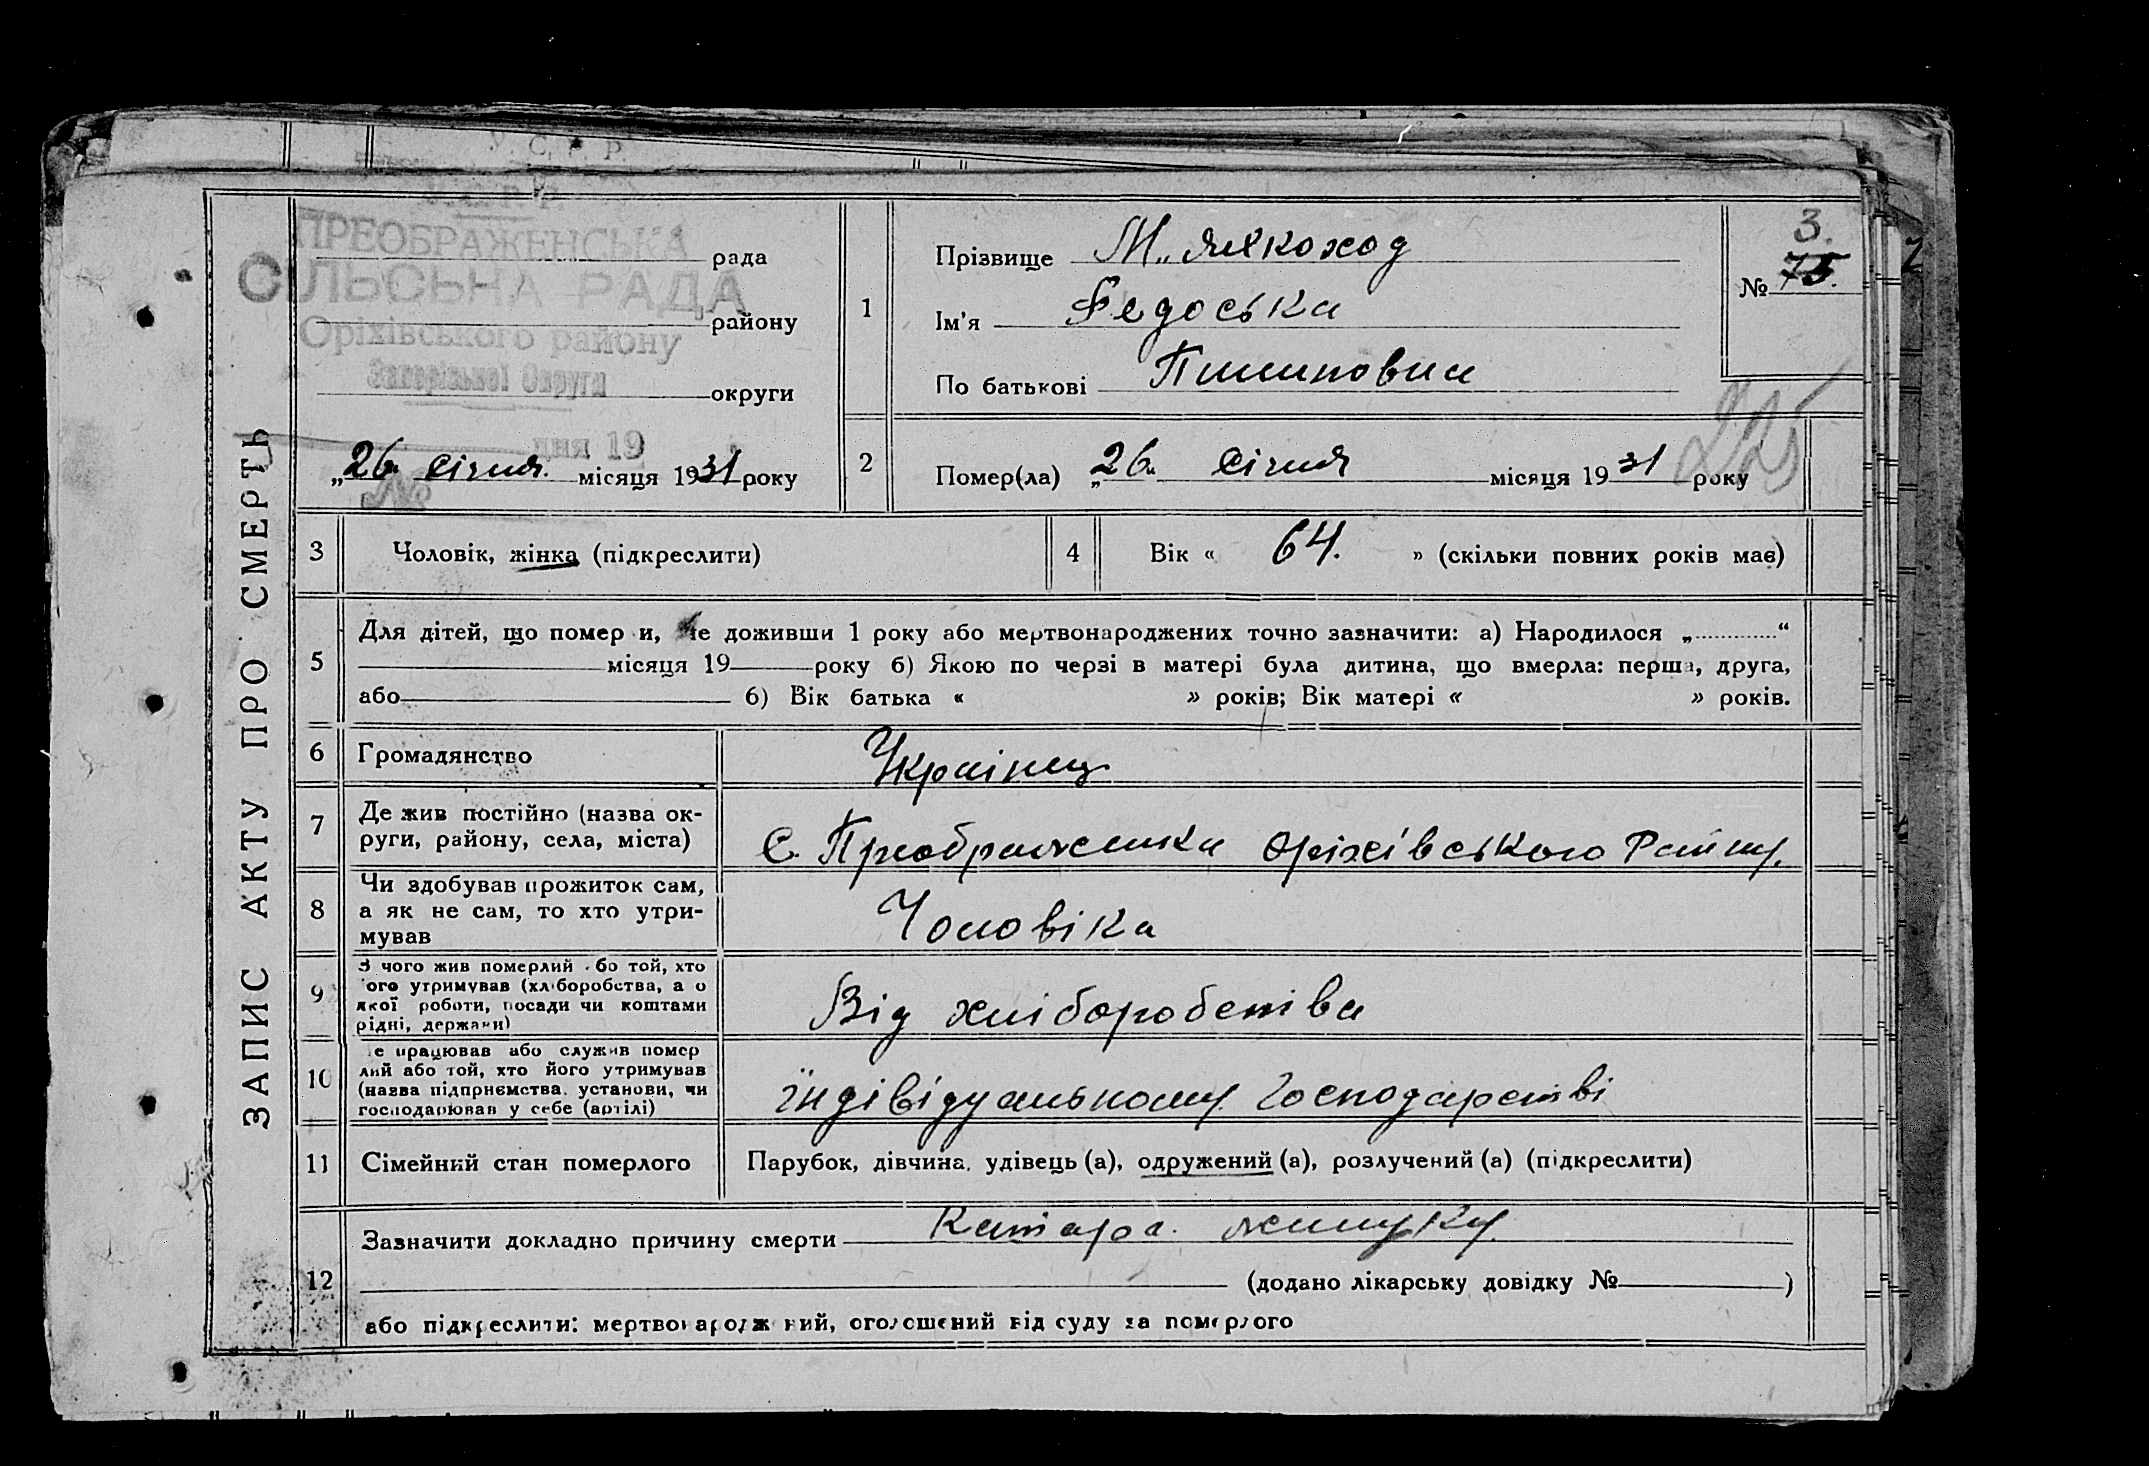 У. С. Р. Р.
ПРЕОБРАЖЕНСЬКА
СІЛЬСЬКА РАДА
Оріхівського району
Запорізької Округи
дня 19
№
рада
району
округи
„26" січня місяця 1931 року
ЗАПИС АКТУ ПРО СМЕРТЬ
1
Прізвище М"якоход
Ім'я Федоська
По батькові Пилиповна
3.
№ 75.
225
2
Помер(ла) „26" січня місяця 1931 року
3 Чоловік, жінка (підкреслити)
4 Вік « 64. » (скільки повних років має)
5
Для дітей, що помер и, не доживши 1 року або мертвонароджених точно зазначити: а) Народилося „ “
місяця 19 року б) Якою по черзі в матері була дитина, що вмерла: перша, друга,
або б) Вік батька « » років; Вік матері « » років.
6 Громадянство Українец
7 Де жив постійно (назва ок-
руги, району, села, міста) С. Преображенка Оріхівського Району.
8 Чи здобував прожиток сам,
а як не сам, то хто утри-
мував Чоловіка
9 З чого жив померлий або той, хто
ого утримував (хліборобства, а о
якої роботи, посади чи коштами
рідні, держави) Від хліборобства
10 е працював або служив помер
лий або той, хто його утримував
(назва підприємства, установи, чи
господарював у себе (артілі) індівідуальному господарстві
11 Сімейний стан померлого Парубок, дівчина, удівець (а), одружений (а), розлучений (а) (підкреслити)
12
Зазначити докладно причину смерти Катара. желудку
(додано лікарську довідку № )
або підкреслити: мертвонароджений, оголошений від суду за померлого